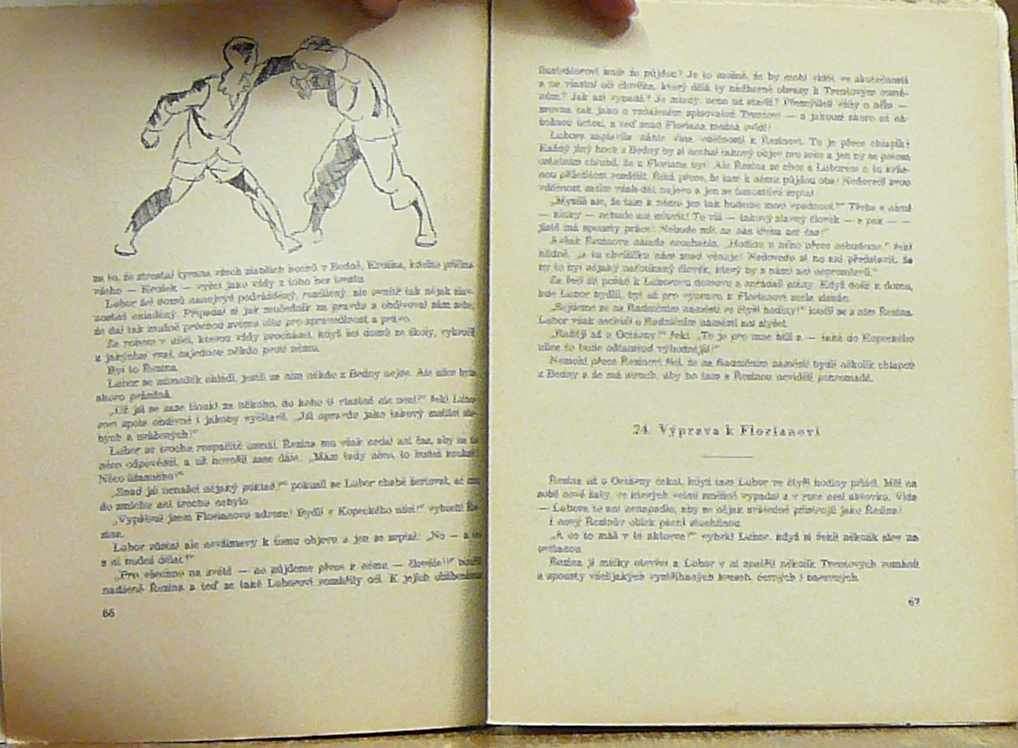 za to, že ztrestal tyrana všech slabších hochů v Bedně, Krolína, kdežto příčina
všeho — Kroček — vyšel jako vždy z toho bez trestu.
Lubor šel domů nanejvýš podrážděný, rozčilený, ale uvnitř tak nějak
Připadal si jak mučedník za pravdu a obdivoval sám sebe,
že dal tak mužně průchod svému citu pro spravedlnost a právo.
Za rohem v ulici, kterou vždy procházel, když šel domů ze školy, vykročil
z jakýchsi vrat zajednou někdo proti němu.
Byl to Řezina.
Lubor se mimoděk ohlédl, jestli za ním někdo z Bedny nejde. Ale ulice byla
skoro prázdná.
„Už jsi se zase tloukl za někoho, do koho ti vlastně nic není!“ řekl Luborovi
zpola obdivně i jakoby vyčítavě. „Jsi opravdu jako takový mstitel slabých
a
Lubor se trochu rozpačitě usmál. Řezina mu však nedal ani čas, aby na to
něco odpověděl, a už hovořil zase dále. „Mám tady něco, to budeš koukat!
Něco úžasného!“
„Snad jsi nenašel nějaký poklad?“ pokusil se Lubor chabě žertovat, ač mu
do smíchu ani trochu nebylo.
„Vypátral jsem Florianovu adresu! Bydlí v Kopeckého ulici!“ vyhrkl Řezina.
Lubor zůstal ale nevšímavý k tomu objevu a jen se zeptal: „No — a co
s ní budeš dělat?“
„Pro všechno na světě — no půjdeme přece k němu — člověče!“
nadšeně Řezina a teď se také Luborovi rozzářily oči. K jejich oblíbenému
66
ilustrátorovi snad že půjdou? Je to možné, že by mohl vidět ve skutečnosti
a na vlastní oči člověka, který dělá ty nádherné obrazy k Trentovým románům?
Jak asi vypadá? Je mladý, nebo už starší? Přemýšleli vždy o něm —
zrovna tak jako o vzdáleném spisovateli Trentovi — s jakousi skoro až zbožnou
úctou, a teď snad Floriana možná uvidí!
Lubora zaplavila náhle vlna vděčnosti k Řezinovi. To je přece chlapík!
Každý jiný hoch z Bedny by si nechal takový objev pro sebe a jen by se potom
ostatním chlubil, že u Floriana byl. Ale Řezina se chce s Luborem o tu
příležitost rozdělit. Říká přece, že tam k němu půjdou oba! Nedovedl svou
vděčnost zatím však dát najevo a jen se starostlivě zeptal:
„Myslíš ale, že tam k němu jen tak budeme moci vpadnout?“ Třeba s námi
— kluky — nebude ani mluvit! To víš — takový slavný člověk — a pak —
jistě má spousty práce! Nebude mít na nás třeba ani čas!“
Avšak Řezinova nálada nezchabla. „Hodinu u něho přece nebudeme,“ řekl
klidně, „a tu chviličku nám snad věnuje! Nedovedu si ho ani představit, že
by to byl nějaký nafoukaný člověk, který by s námi ani nepromluvil.“
Ze řečí šli pořád k Luborovu domovu a spřádali plány. Když došli k domu,
kde Lubor bydlil, byl už pro výpravu k Florianovi zcela získán.
„Sejdeme se na Radničním náměstí ve čtyři hodiny!“ loučil se s ním Řezina.
Lubor však nechtěl o Radničním náměstí ani slyšet.
„Raději až u Octárny!“ řekl. „To je pro mne blíž a — také do Kopeckého
ulice to bude odtamtud výhodnější!“
Nemohl přece Řezinovi říci, že na Radničním náměstí bydlí několik chlapců
z Bedny a že má strach, aby ho tam s Řezinou neviděli pohromadě.
24. Výprava k Florianovi
Řezina už u Octárny čekal, když tam Lubor ve čtyři hodiny přišel. Měl na
sobě nové šaty, ve kterých velmi směšně vypadal a v ruce nesl aktovku. Vida
— Lubora to ani nenapadlo, aby se nějak svátečně přistrojil jako Řezina!
I nový Řezinův oblek páchl stuchlinou.
„A co to máš v té aktovce?“ vybafl Lubor, když si řekli několik slov na
uvítanou.
Řezina ji mlčky otevřel a Lubor v ní spatřil několik Trentových románů
a spousty všelijakých vystřihaných kreseb, černých i barevných.
67